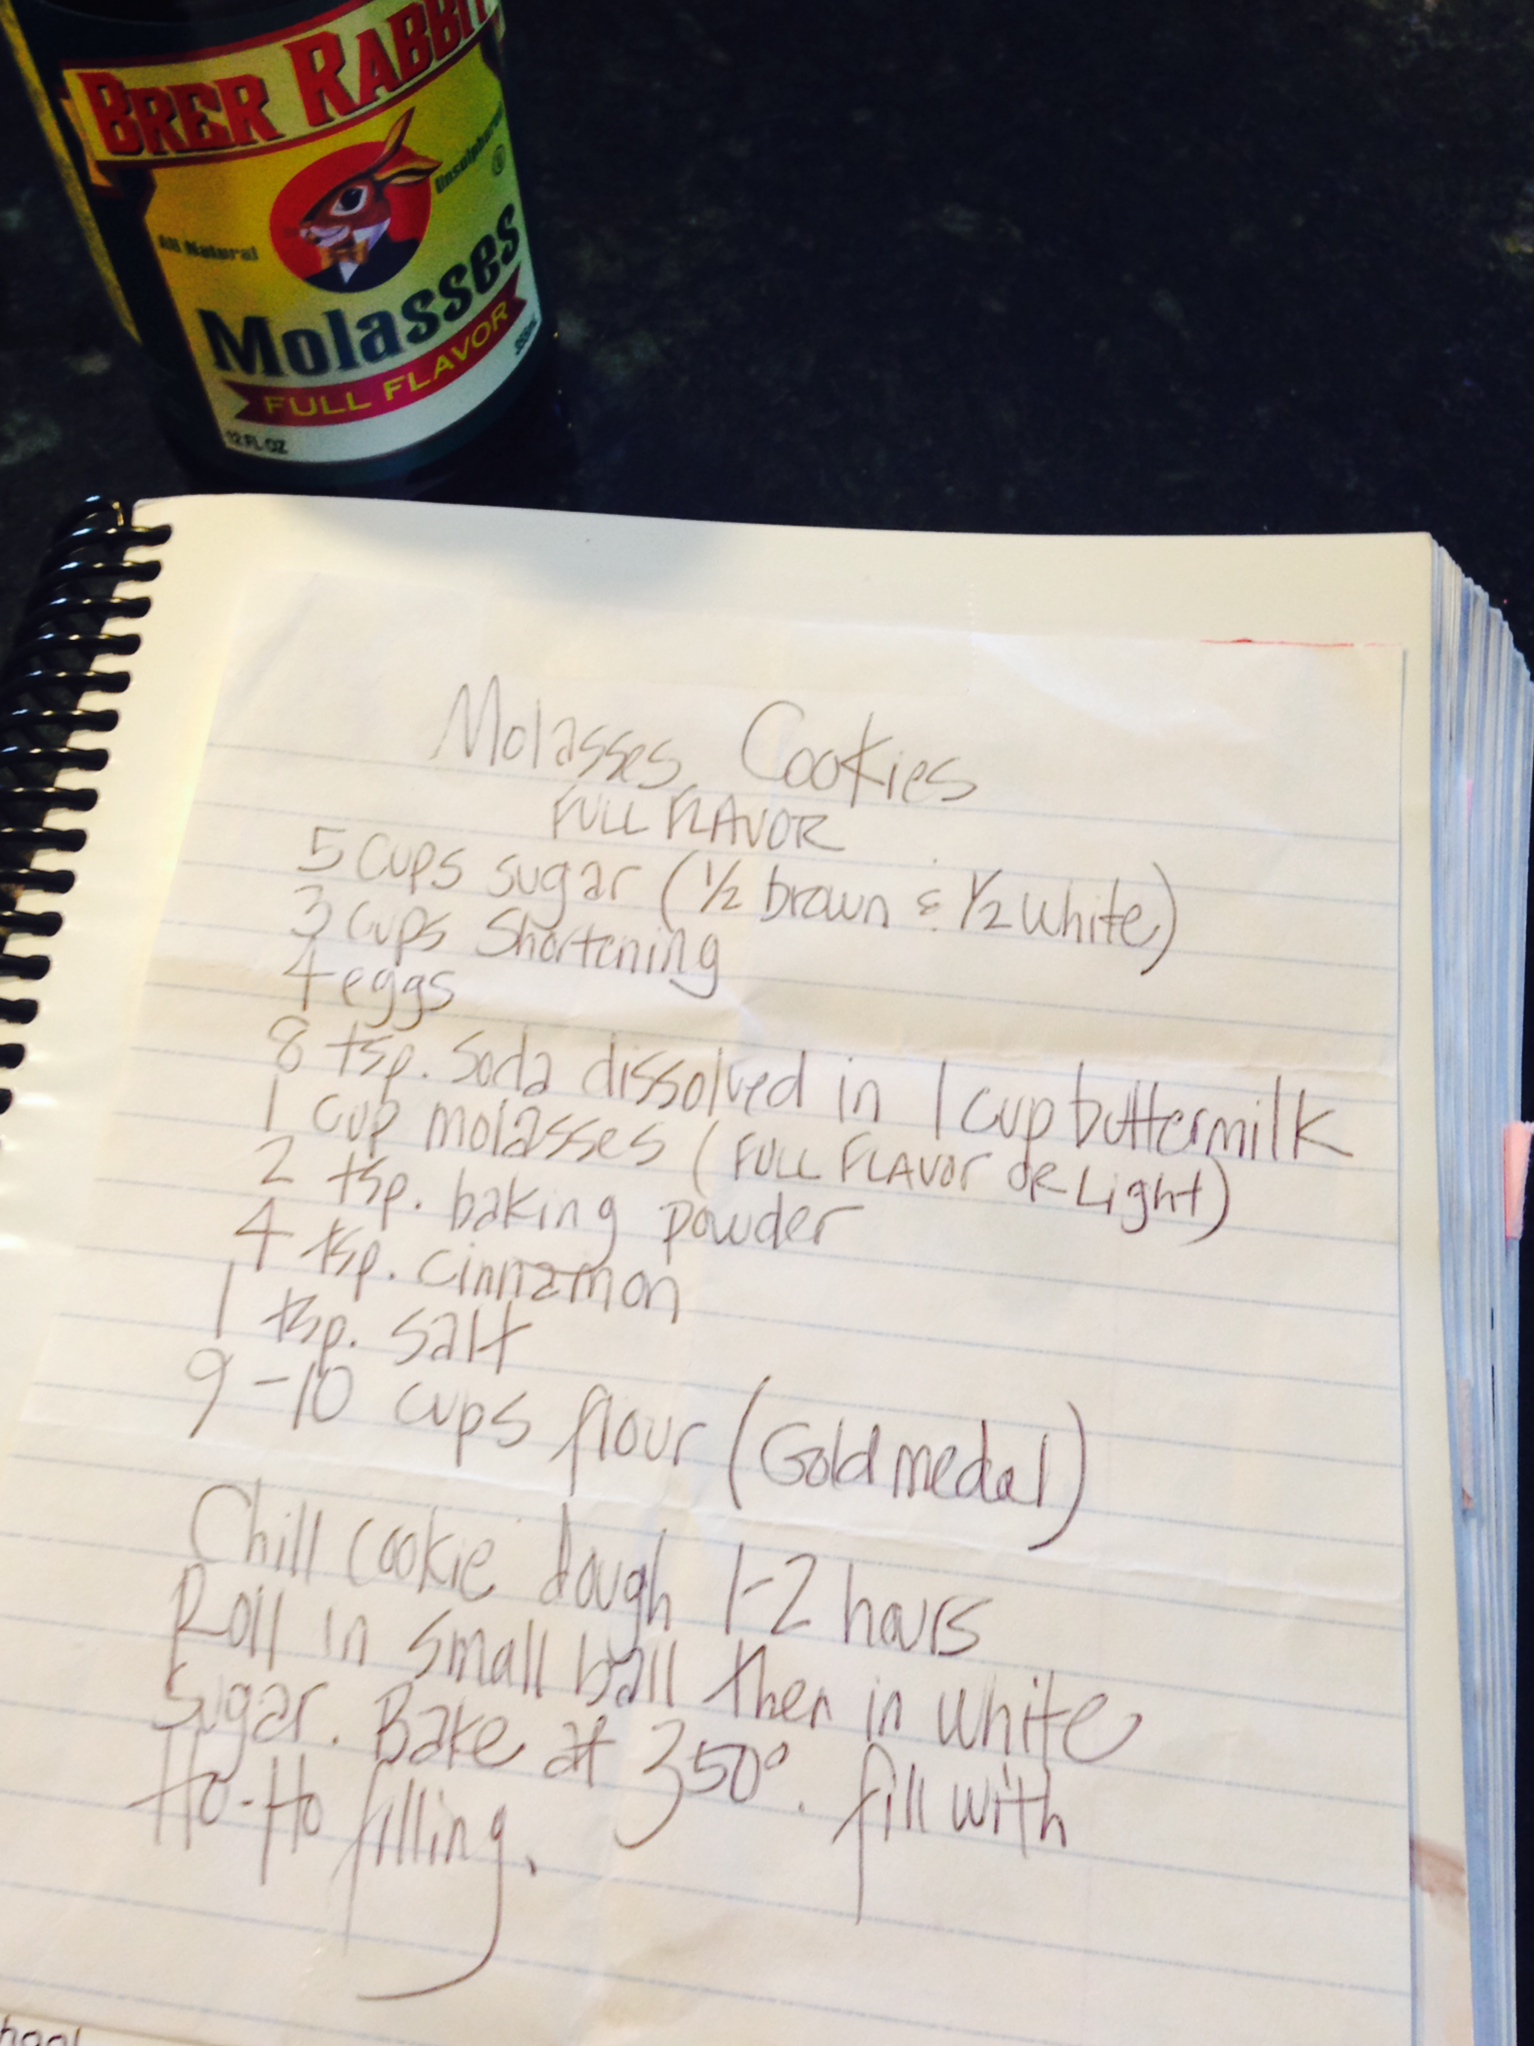 BRER RABBIT
All Natural
Unsulphured
Molasses
FULL FLAVOR
12 FL OZ
Molasses Cookies
FULL FLAVOR
5 cups sugar (1/2 brown & 1/2 white)
3 cups shortening
4 eggs
8 tsp. soda dissolved in 1 cup buttermilk
1 cup molasses (FULL FLAVOR OR Light)
2 tsp. baking powder
4 tsp. cinnamon
1 tsp. salt
9-10 cups flour (Gold medal)
Chill cookie dough 1-2 hours
Roll in small ball then in white
sugar. Bake at 350°. fill with
Ho-Ho filling.